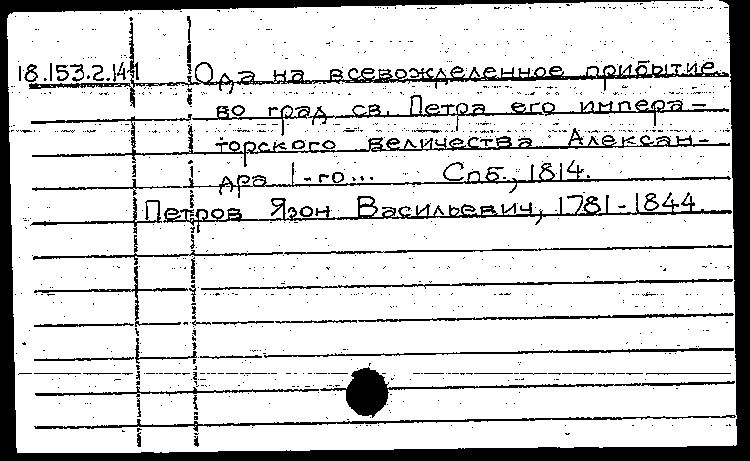 18.153.2.141 Ода на всевожделенное прибытие
во град св. Петра его импера-
торского величества Алексан-
дра 1-го... Спб., 1814.
Петров Язон Васильевич, 1781-1844.